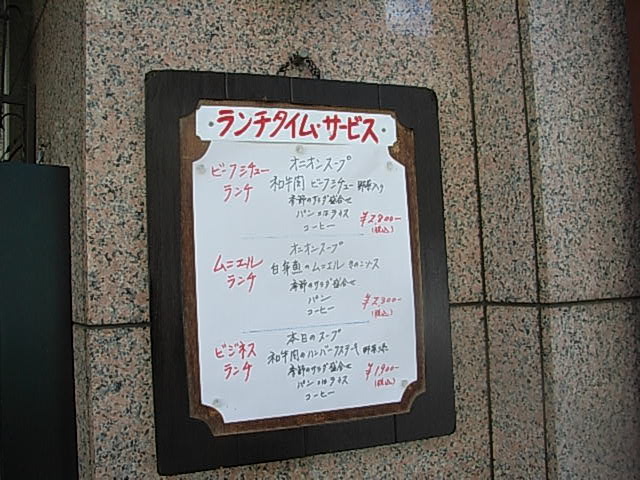 ・ランチタイム・サービス・
ビーフシチュー
ランチ
オニオンスープ
和牛肉 ビーフシチュー 野菜入り
季節のサラダ盛合せ
パン又はライス
コーヒー
¥2,800-
(税込)
ムニエル
ランチ
オニオンスープ
白身魚のムニエル きのこソース
季節のサラダ盛合せ
パン
コーヒー
¥2,300-
(税込)
ビジネス
ランチ
本日のスープ
和牛肉のハンバーグステーキ 野菜添
季節のサラダ盛合せ
パン又はライス
コーヒー
¥1,900-
(税込)